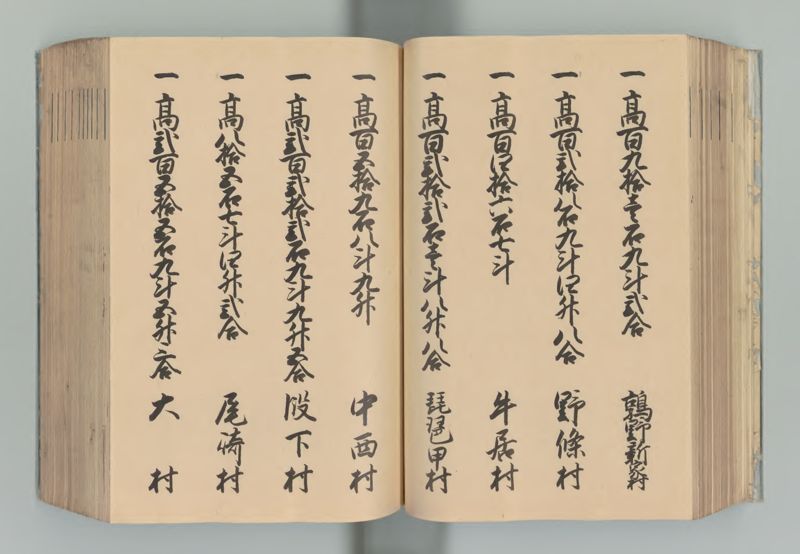 一高百九拾壱石九斗弐合 鶉野新家村
一高百弐拾八石九斗四升八合 野條村
一高百四拾六石七斗 牛居村
一高百弐拾弐石壱斗八升八合 琵琶甲村
一高百五拾九石八斗九升 中西村
一高弐百弐拾弐石九斗九升五合 段下村
一高八拾五石七斗四升弐合 尾崎村
一高弐百五拾五石九斗五升六合 大村